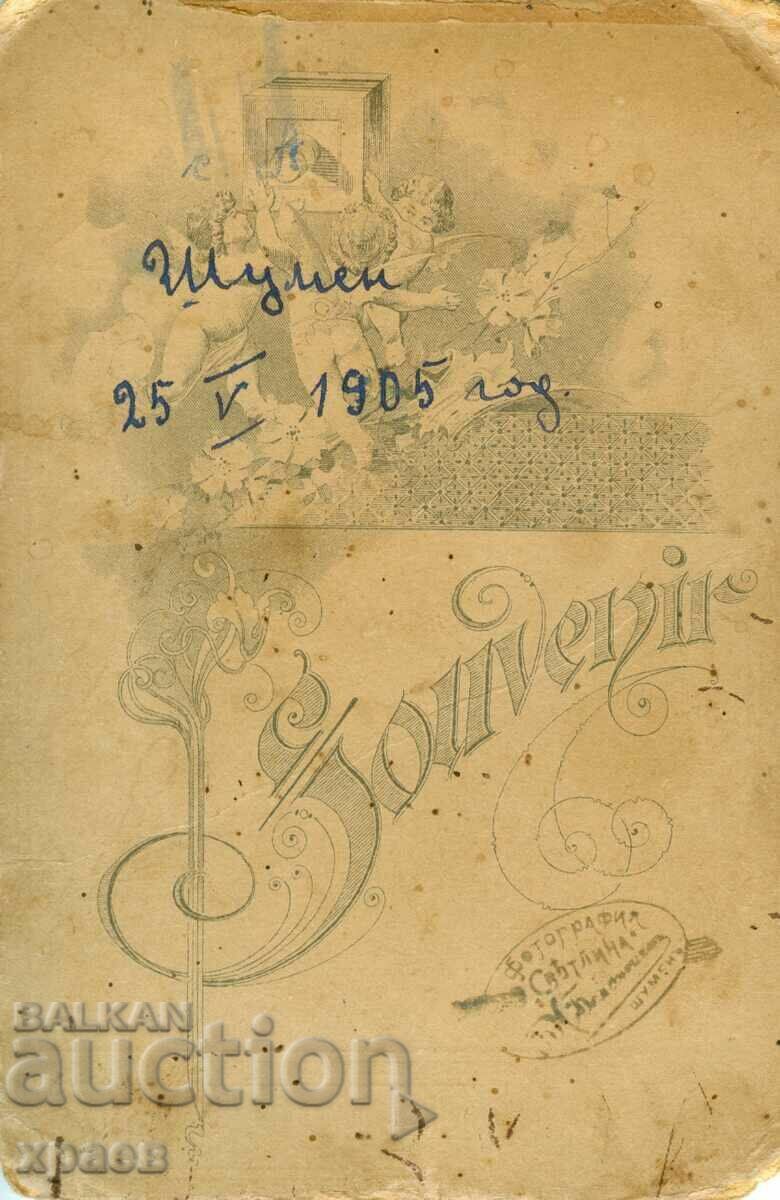 Шумен
25 V 1905 год.
Souvenir
ФОТОГРАФИЯ
СВѢТЛИНА
ШУМЕНЪ
BALKAN
auction
храов